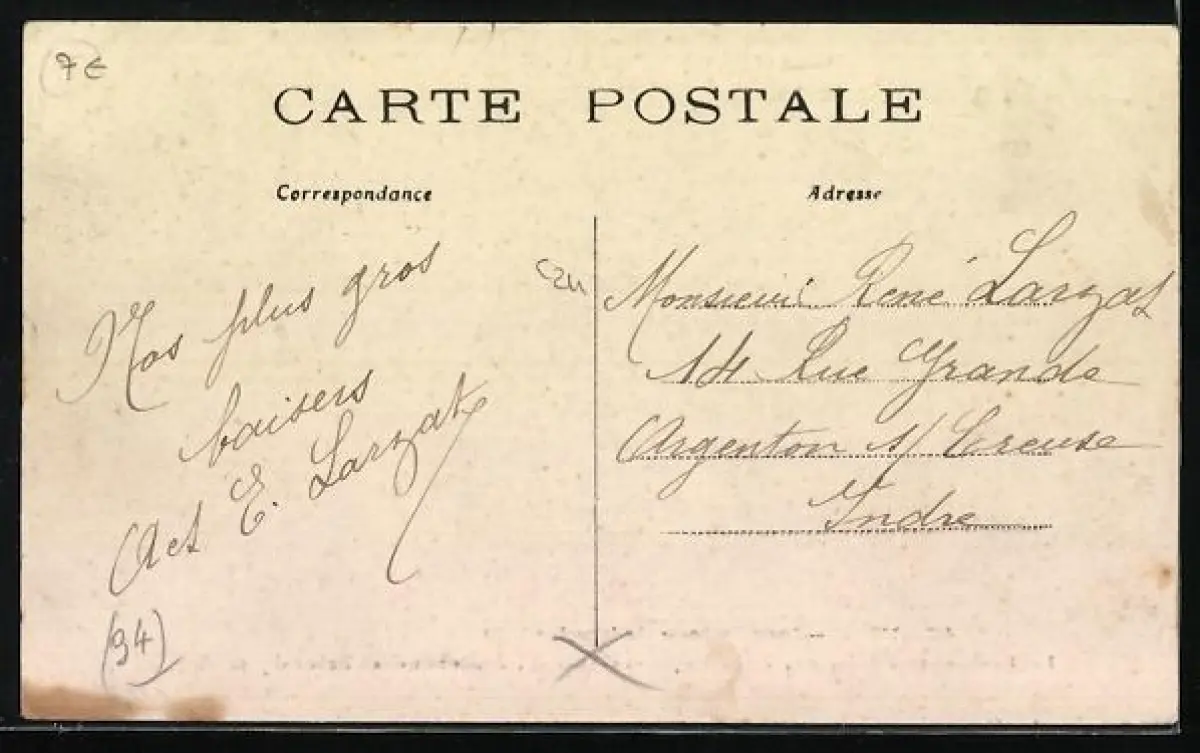 7€
CARTE POSTALE
Correspondance
Adresse
Nos plus gros
baisers
A et E. Larzat
(94)
Monsieur René Larzat
14 Rue Grande
Argenton s/ Creuse
Indre